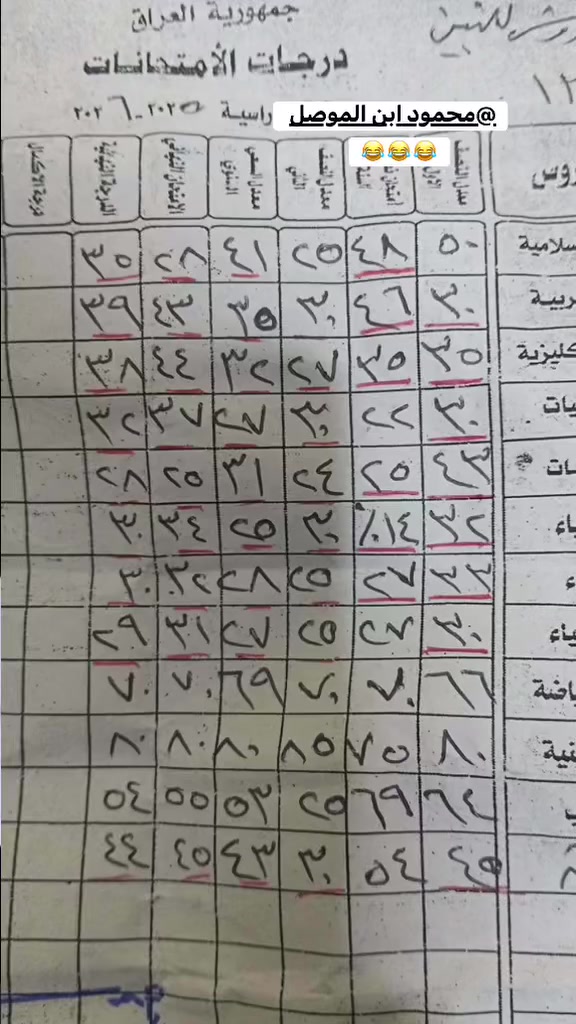 جمهورية العراق
درجات الأمتحانات
راسية ٢٠٢٥-٢٠٢٦
@محمود ابن الموصل
😂😂😂
روس معدل النصف الاول السنة معدل النصف الثاني معدل السعي السنوي الامتحان النهائي الدرجة النهائية درجة الاكمال
سلامية ٥٠ ٤٨ ٢٥ ٤١ ٢٨ ٣٥
ربية ٣٠ ٤٦ ٣٠ ٣٥ ٤٣ ٣٩
كليزية ٣٥ ٣٥ ٢٧ ٣٢ ٤٤ ٣٨
يات ٣٠ ٢٢ ٣٠ ٢٧ ٣٧ ٣٢
ات ٤٣ ٢٥ ٢٤ ٣١ ٢٥ ٢٨
اء ٣٢ ١٤٪ ٢٠ ٢٥ ٣٤ ٣٠
ء ٣٣ ٢٧ ٢٥ ٢٨ ٣٢ ٣٠
ياء ٣٠ ٢٧ ٢٥ ٢٧ ٣١ ٢٩
اضة ٦٦ ٧٠ ٧٠ ٦٩ ٧٠ ٧٠
نية ٨٠ ٧٥ ٨٥ ٨٠ ٨٠ ٨٠
ب ٦٤ ٦٩ ٢٥ ٥٣ ٥٥ ٥٤
٤٥ ٥٤ ٣٠ ٤٣ ٤٥ ٤٤